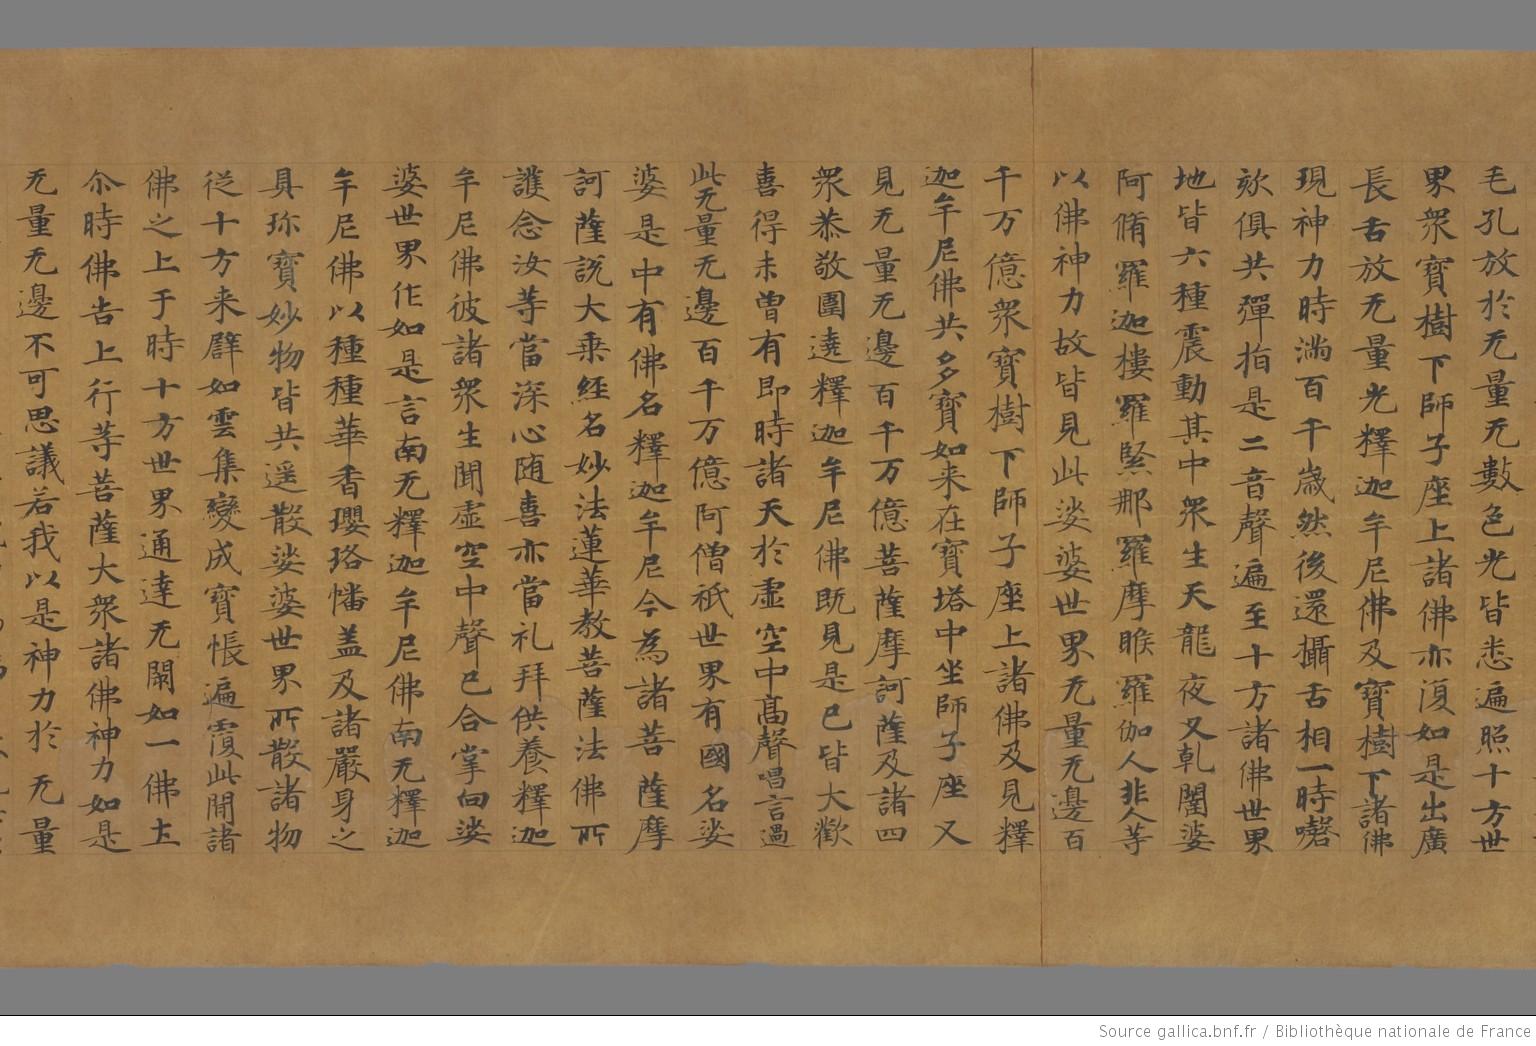 毛孔放於无量无數色光皆悉遍照十方世
界衆寶樹下師子座上諸佛亦復如是出廣
長舌放无量光釋迦牟尼佛及寶樹下諸佛
現神力時滿百千歲然後還攝舌相一時謦
欬俱共彈指是二音聲遍至十方諸佛世界
地皆六種震動其中衆生天龍夜叉乹闥婆
阿脩羅迦樓羅緊那羅摩睺羅伽人非人等
以佛神力故皆見此娑婆世界无量无邊百
千万億衆寶樹下師子座上諸佛及見釋
迦牟尼佛共多寶如来在寶塔中坐師子座又
見无量无邊百千万億菩薩摩訶薩及諸四
衆恭敬圍遶釋迦牟尼佛既見是已皆大歡
喜得未曾有即時諸天於虛空中髙聲唱言過
此无量无邊百千万億阿僧祇世界有國名娑
婆是中有佛名釋迦牟尼今為諸菩薩摩
訶薩說大乘經名妙法蓮華教菩薩法佛所
護念汝等當深心随喜亦當礼拜供養釋迦
牟尼佛彼諸衆生聞虛空中聲已合掌向娑
婆世界作如是言南无釋迦牟尼佛南无釋迦
牟尼佛以種種華香瓔珞幡盖及諸嚴身之
具珎寶妙物皆共遥散娑婆世界所散諸物
從十方来辟如雲集變成寶帳遍覆此閒諸
佛之上于時十方世界通達无閡如一佛土
尒時佛告上行等菩薩大衆諸佛神力如是
无量无邊不可思議若我以是神力於无量
Source gallica.bnf.fr / Bibliothèque nationale de France